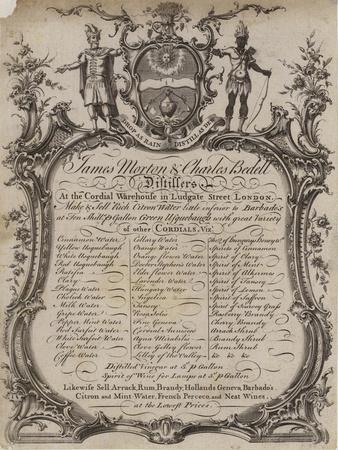 DROP AS RAIN DISTILL AS DEW
James Morton & Charles Bedell
Distillers
At the Cordial Warehouse in Ludgate Street LONDON.
Make & Sell Rich Citron Water little inferior to Barbados
at Ten Shills. P Gallon Green Usquebaugh with great Variety
of other CORDIALS, Viz.
Cinnamon Water
Yellow Usquebaugh
White Usquebaugh
Red Usquebaugh
Ratafia
Clary
Plague Water
Cholick Water
Milk Water
Grape Water
Pepper Mint Water
Red Surfeit Water
White Surfeit Water
Clove Water
Coffee Water
Cellary Water
Orange Water
Orange flower Water
Doctor Stephens Water
Elder flower Water
Lavender Water
Hungary Water
Angelica
Tansey
Rosa Solis
Fine Geneva
Cordial Anniseed
Aqua Mirabilis
Clove Gilley flower
Lilley of the Valley
Spirit of Cinnamon
Spirit of Clary
Spirit of Mint
Spirit of Alkermes
Spirit of Tansey
Spirit of Lemon
Spirit of Saffron
Spirit of Scurvy Grass
Rasberry Brandy
Cherry Brandy
Orack Shrub
Brandy Shrub
Rum Shrub
&c &c &c
Distilled Vinegar at 5s. P Gallon
Spirit of Wine for Lamps at 5s. P Gallon
Likewise Sell Arrack, Rum, Brandy, Hollands Geneva, Barbado's
Citron and Mint-Water, French Perceco, and Neat Wines,
at the Lowest Prices.